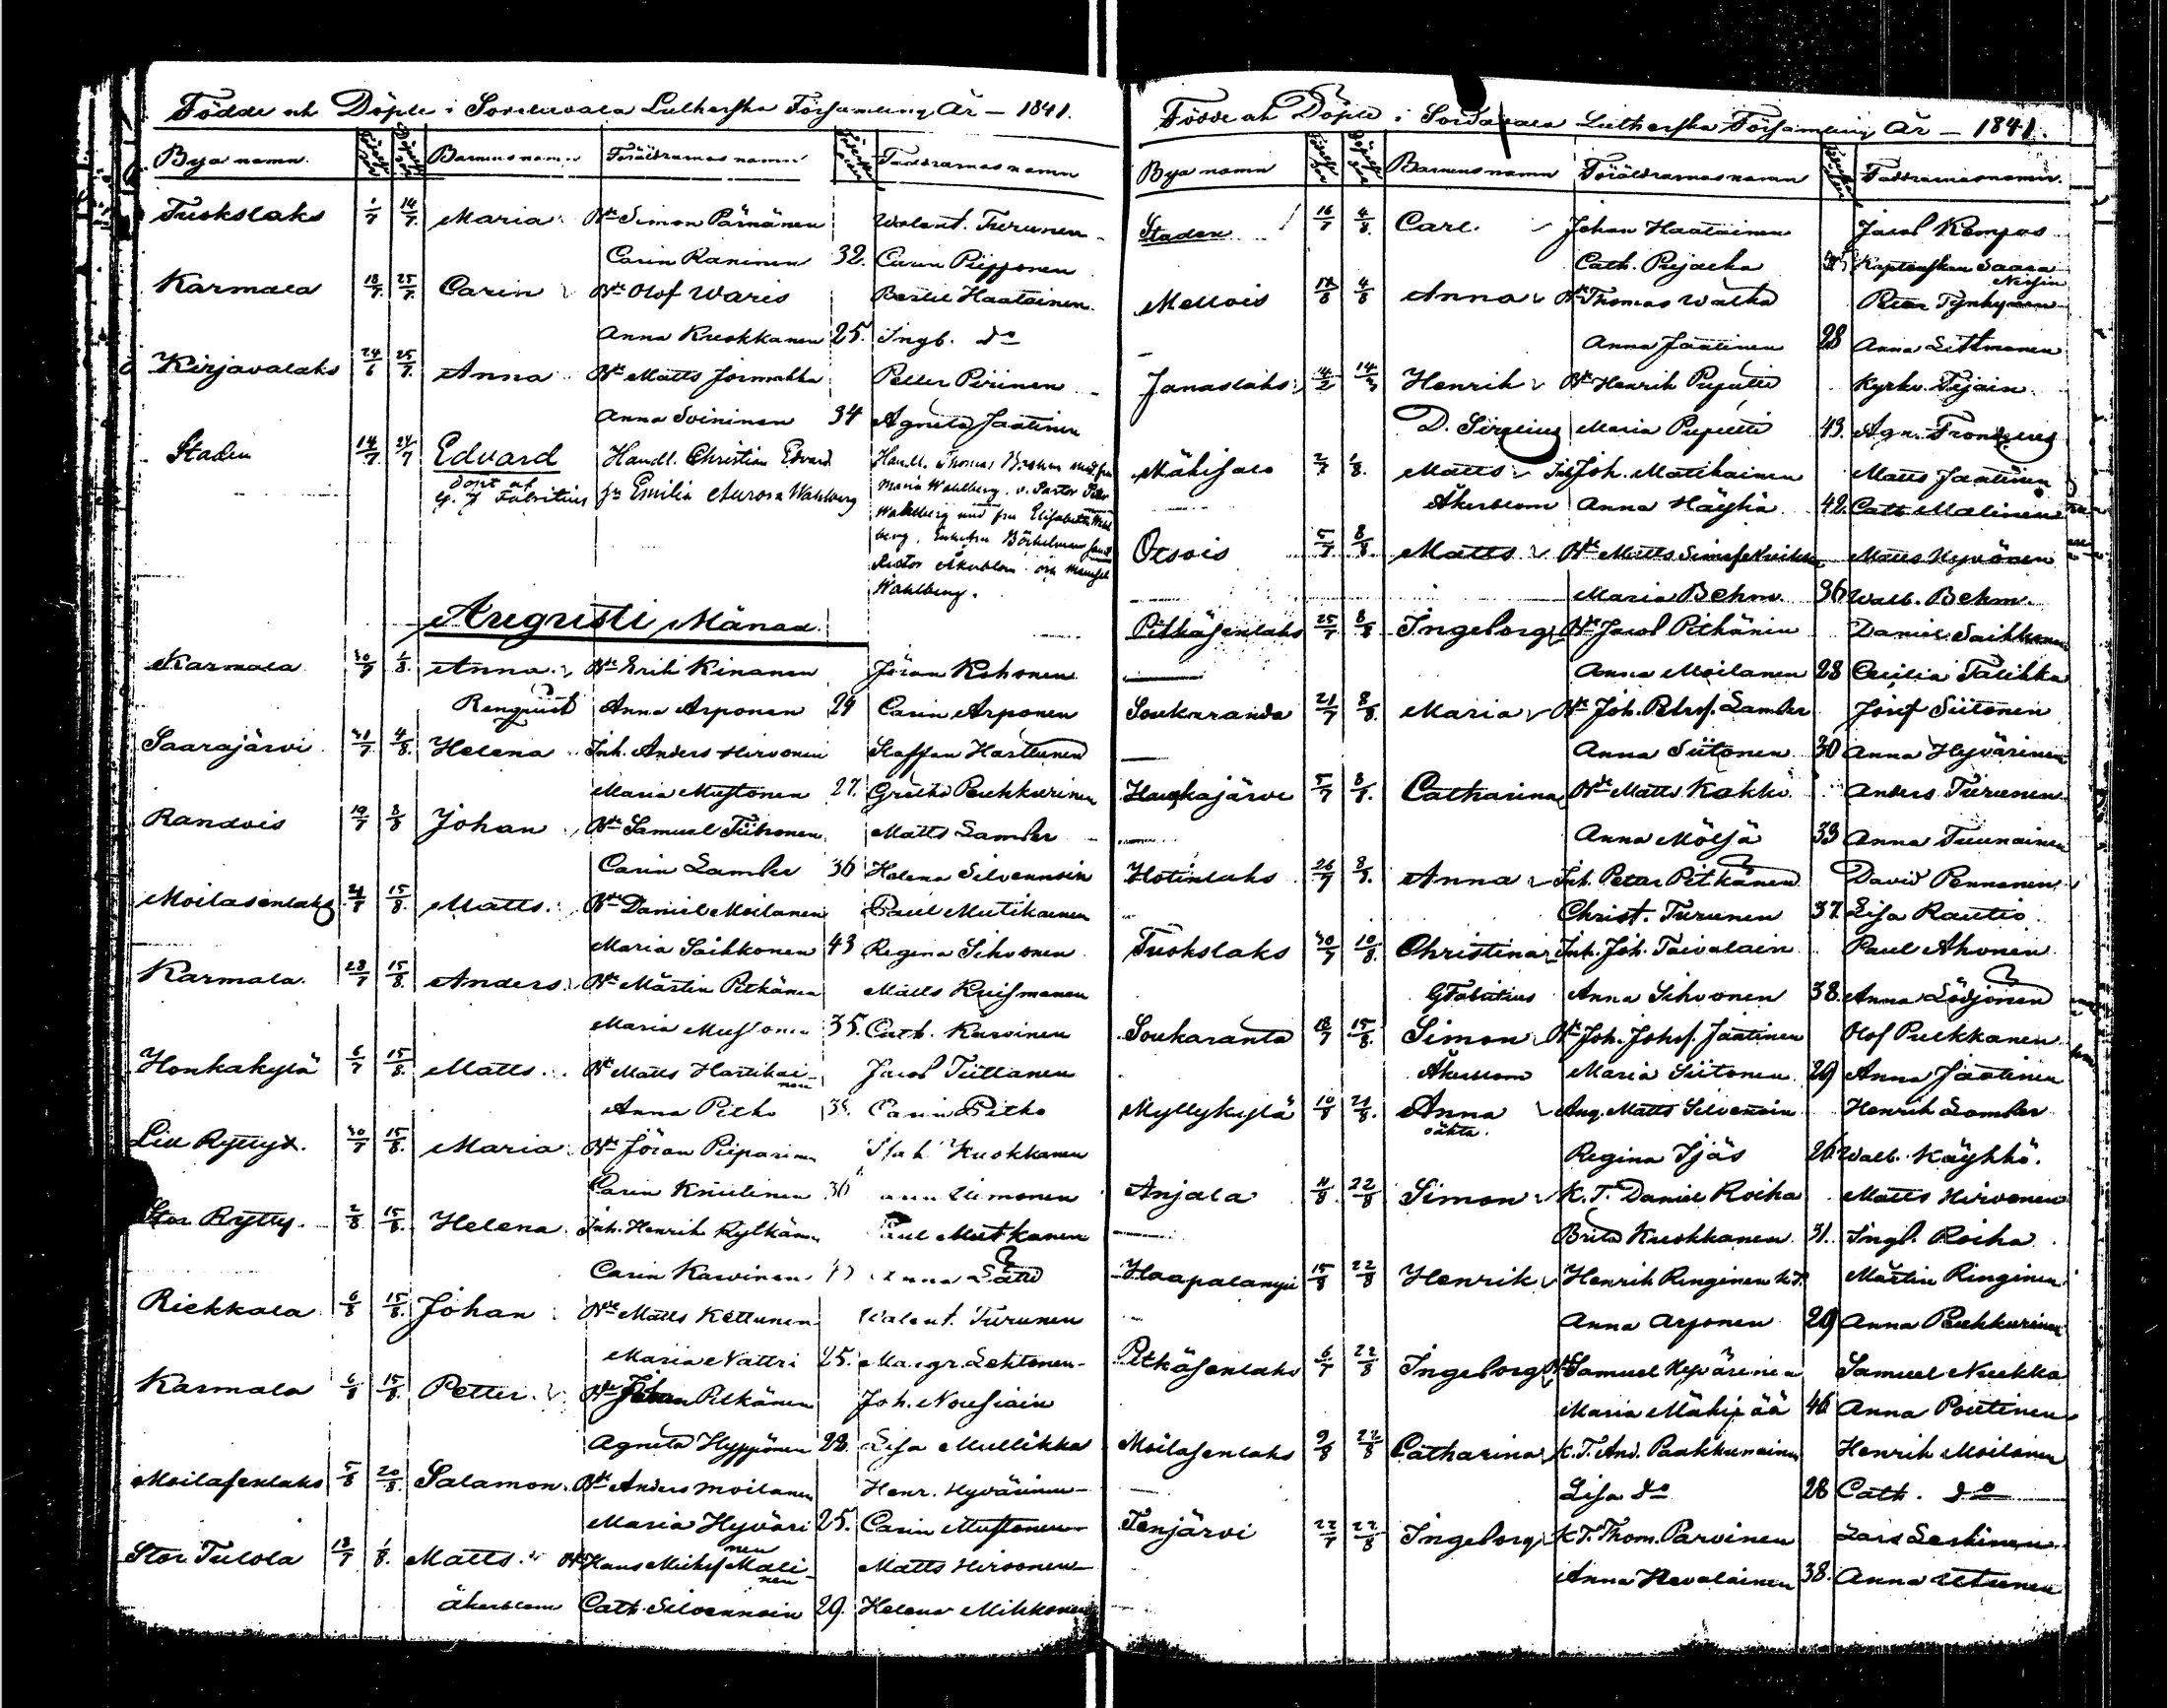 Födde och Döpte i Sordavala Lutherska Församling År – 1841.
Bya namn. Barnens namn Föräldrarnas namn Faddrarnas namn
Tuokslaks 1/7 14/7. Maria. Bde Simon Pärnänen Valent. Turunen
Carin Raninen 32. Carin Piipponen
Karmala 18/7. 25/7. Carin Bde Olof Waris Bertil Haatainen.
Anna Kuokkanen 25. Ingb. do
Kirjavalaks 24/6 25/7. Anna Bde Matts Jormakka Petter Piirinen
Anna Soininen 34 Agneta Jaatinen
Staden 14/7. 24/7 Edvard Handl. Christian Edvard Handl. Thomas med fru
döpt af fr Emilia Aurora Wahlberg Maria Wahlberg. v. Pastor Petter
G. F Fabritius Wahlberg med fru Elisabeth Wahl
berg, Enkefru Böckelman samt
Rector Åkerblom och Mamsell
Wahlberg.
Augusti Månad.
Karmala 30/7 1/8. Anna. Bde Erik Kinanen Jöran Kohonen
Renquist Anna Arponen 29 Carin Arponen
Saarajärvi 31/7. 4/8. Helena Inh. Anders Hirvonen Staffan Harttunen
Maria Mustonen 27. Gretha Puhkurinen
Randois 19/7 8/8 Johan Bde Samuel Tiihonen Matts Lamber
Carin Lamber 36 Helena Silvennoin
Moilasenlaks 21/7 15/8. Matts. Bde Daniel Moilanen Paul Mutikainen
Maria Saikkonen 43 Regina Sihvonen
Karmala. 28/7 15/8. Anders. Bde Mårtin Pitkänen Matts Kuismanen
Maria Mustonen 35. Cath. Karvinen
Honkakylä 6/7 15/8. Matts. Bde Matts Hartikai-
nen Jacob Tiittanen
Anna Pitko Carin Pitko
Lill Ryttyx. 30/7 15/8. Maria. Bde Jöran Piiparinen Kuokkanen
Carin Knuutinen 36 Simonen
Stor Rytty. 2/8 15/8. Helena. Inh. Henrik Kylkänen Paul Mutkanen
Carin Karvinen Anna Lätti
Riekkala 6/8 15/8. Johan Bde Matts Kettunen Valent. Turunen
Maria Nattri 25. Margr. Lehtonen
Karmala 6/8 15/8. Petter. Bde Johan Pitkänen Joh. Nousiain
Agneta Hyppönen 28. Lisa Mullikka
Moilasenlaks 5/8 20/8. Salamon. Bde Anders Moilanen Henr. Hyvärinen
Maria Hyväri
nen 25. Carin Mustonen
Stor Tulola 18/7 1/8. Matts. Bde Hans Michs Mali-
nen Matts Hirvonen
Åkerblom Cath. Silvennoin 29. Helena Mikkonen
Födde och Döpte i Sordavala Lutherska Församling År – 1841.
Bya namn Barnens namn Föräldrarnas namn Faddrarnas namn.
Staden 16/7 4/8. Carl. Johan Haatainen Jacob Kempas
Cath. Kaptenskan Saara
Mellois 4/8 Anna Bde Thomas Walka Petter Tynkynen
Anna Jaatinen 28 Anna Littmanen
Janaslaks 14/2 Henrik Bde Henrik Puputti Kyrkv. Tijäin
D. Sirelius Maria Puputti 43. Agn. Frondelius
Mäkisalo 2/7 1/8. Matts Inh Joh. Matikainen Matts Jaatinen
Åkerblom Anna Häyhä 42. Cath Malinen
Otsois 5/7. 8/8. Matts. Bde Matts Nuikka Matts Hyvönen
Maria Behm. 36 Walb. Behm.
Pitkäsenlaks 25/7 8/8 Ingeborg Bde Jacob Pitkänin Daniel Saikkonen
Anna Moilanen 28 Cecilia Talikka
Soukaranda 21/7 8/8. Maria Bde Joh. Petrs. Lamber Josef Siitonen
Anna Siitonen 30 Anna Hyvärinen
Haukajärvi 5/7 8/8. Catharina Bde Matts Kokko Anders Turunen
Anna Möljä 33 Anna Tuunainen
Hotinlaks 26/7 8/8. Anna Inh. Petter Pitkänen David Pennanen
Christ. Turunen 37. Lisa Rautio
Tuokslaks 30/7 10/8. Christina Inh. Joh. Toivalain Paul Ahonen
G Fabritius Anna Sihvonen 38. Anna Lödjönen
Soukaranta 18/7 15/8. Simon Bde Joh. Johs. Jaatinen Olof Pulkkanen
Åkerblom Maria Siitonen 29 Anna Jaatinen
Myllykylä 10/8 21/8. Anna Ang. Matts Silvennoin Henrik Lamber
oäkta. Regina Ijäs 26. Walb. Käyhkö.
Anjala 11/8. 22/8 Simon K. T. Daniel Roiha Matts Hirvonen
Brita Kuokkanen 31. Ingb. Roiha
Haapalampi 15/8 22/8 Henrik Henrik Ringinen k.T. Mårtin Ringinen
Anna Arponen 29 Anna Puhkurinen
Pitkäsenlaks 6/7 22/8 Ingeborg Bde Samuel Hyvärinen Samuel Nuikka
Maria Mäkipää 46 Anna Poutinen
Moilasenlaks 9/8 22/8 Catharina K. T. And. Paakkunainen Henrik Moilanen
Lisa do 28 Cath. do
Tenjärvi 22/7 22/8 Ingeborg K T. Thom. Parvinen Lars Leskinen
Anna Hevalainen 38. Anna Utunen